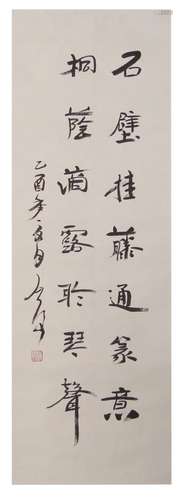 石壁挂藤通篆意
桐荫滴露聆琴聲
乙酉年夏月